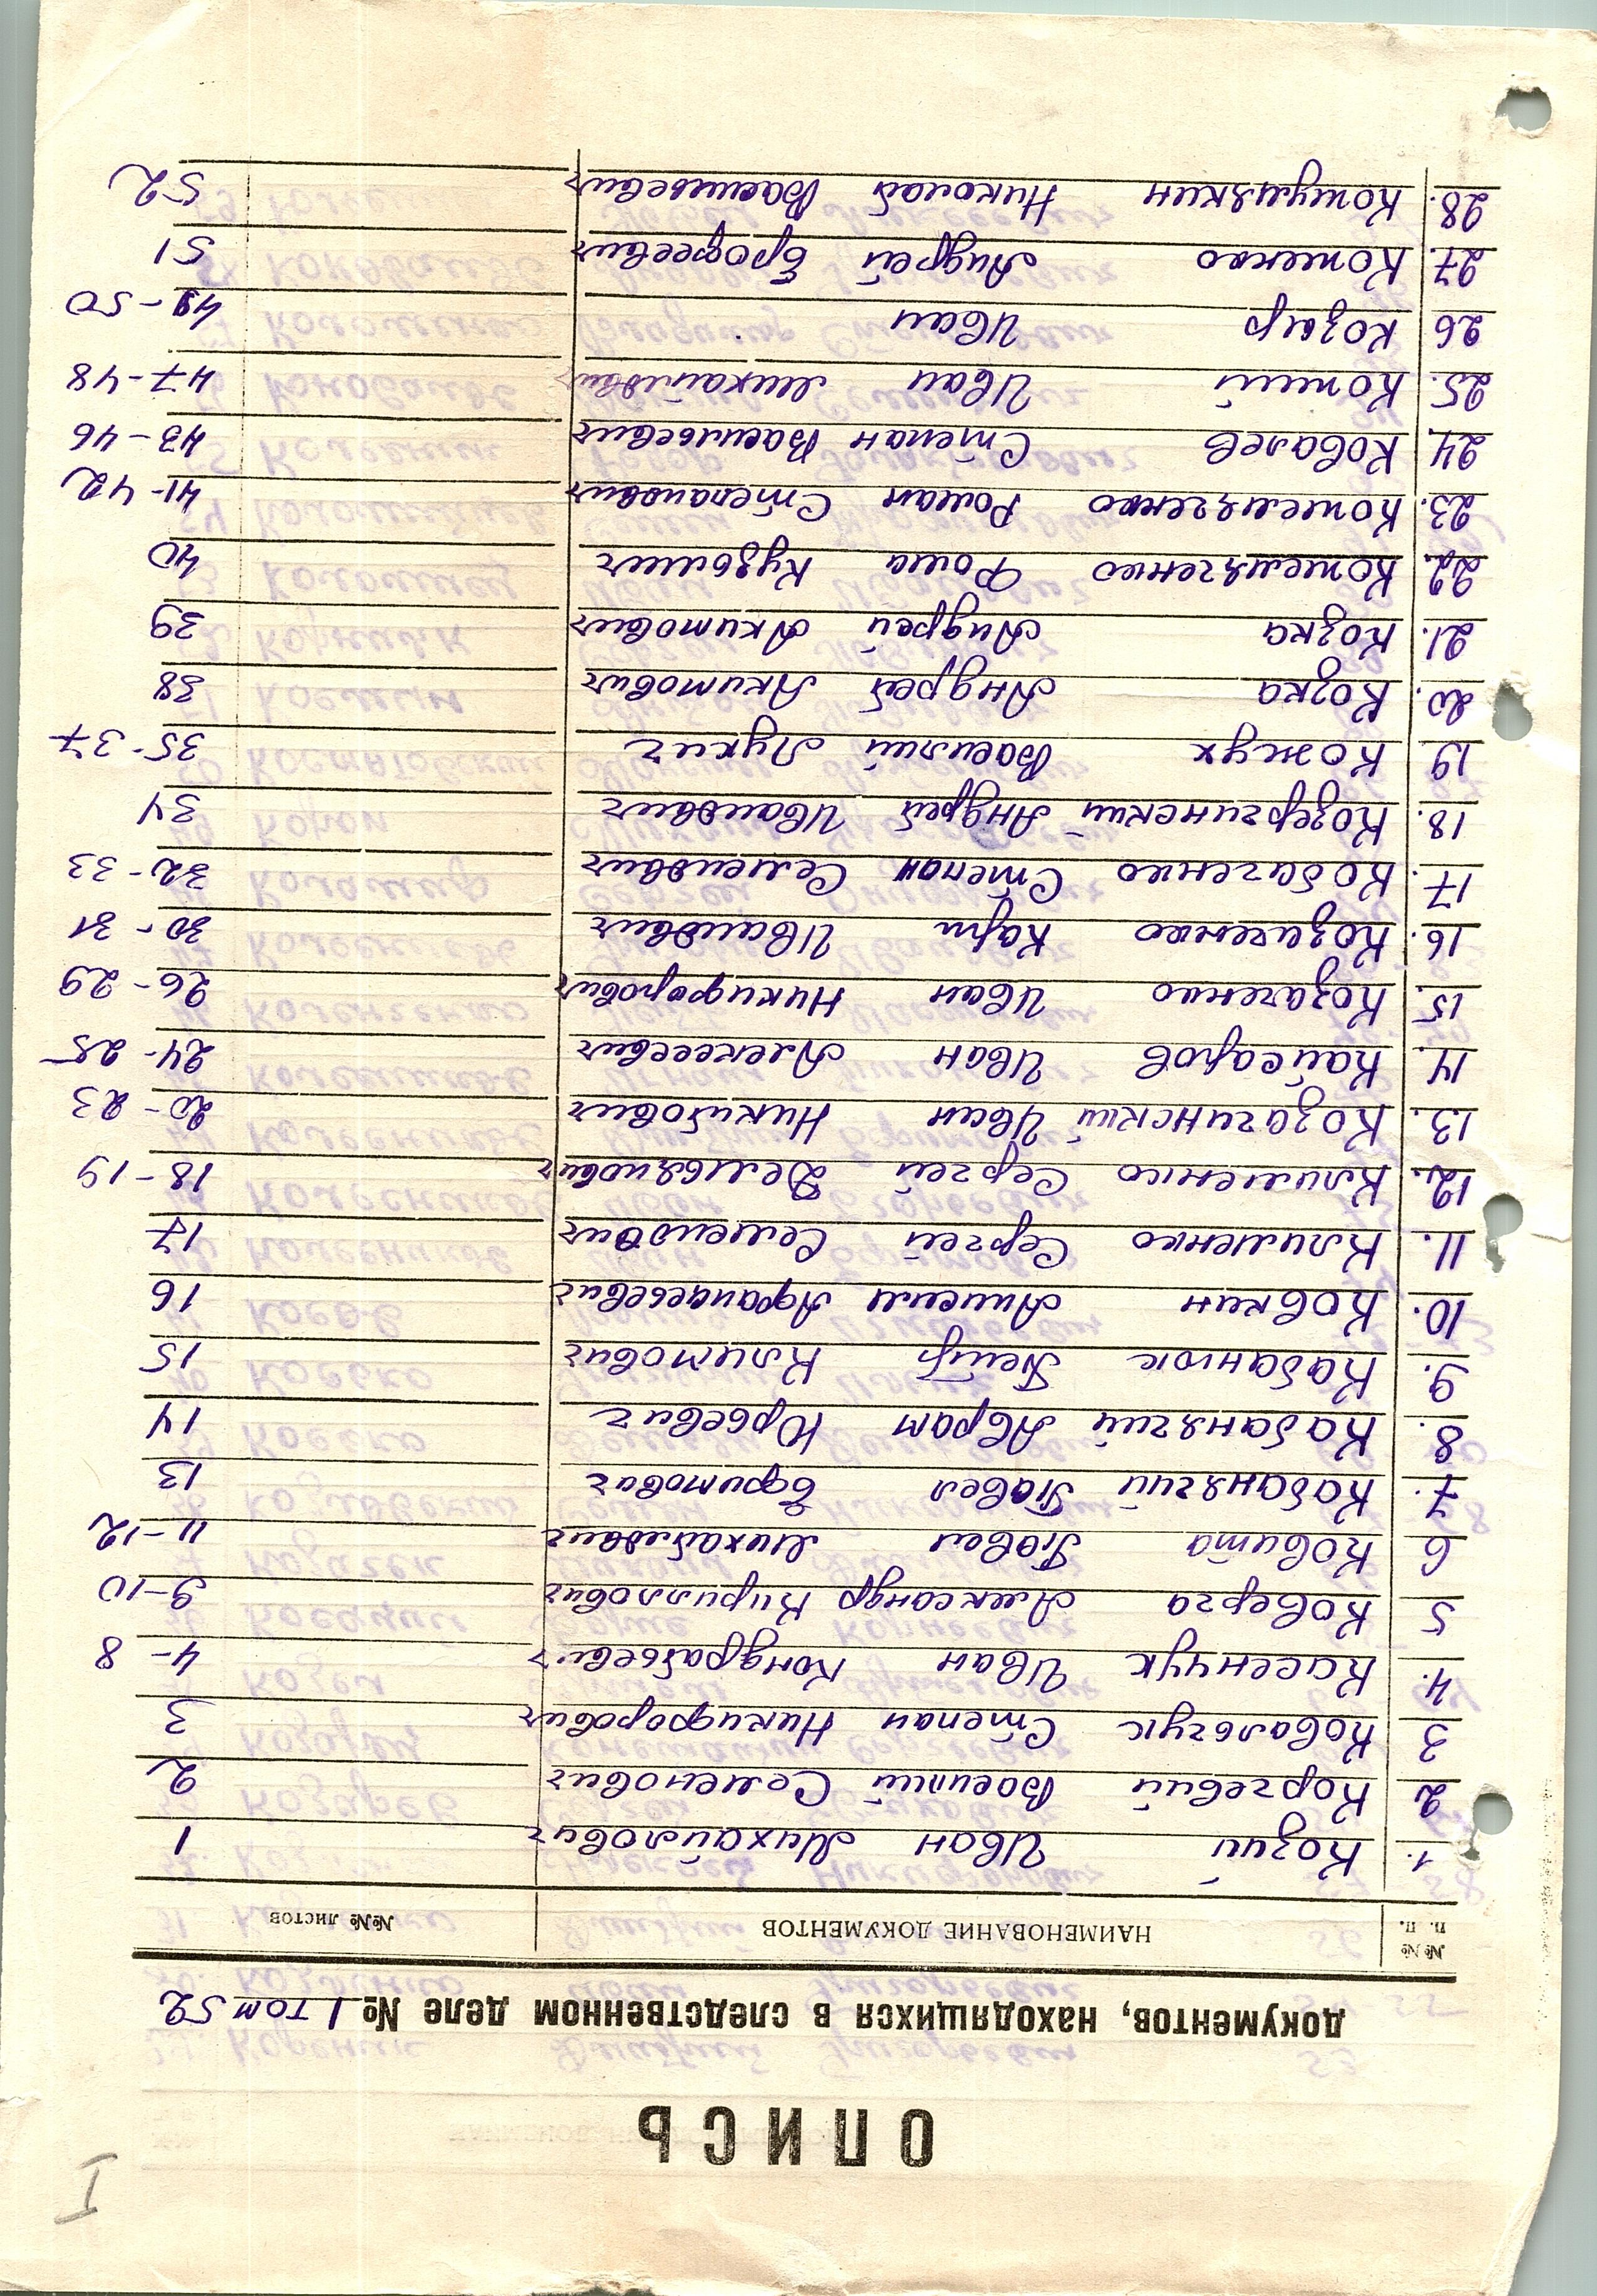 I
ОПИСЬ
документов, находящихся в следственном деле № 1 том 52
№№ п. п. НАИМЕНОВАНИЕ ДОКУМЕНТОВ №№ листов
1. Козий Иван Михайлович 1
2 Корчевий Василий Семенович 2
3 Ковальчук Степан Никифорович 3
4. Касенчук Иван Кондратьевич 4-8
5 Коверга Александр Кириллович 9-10
6 Ковита Павел Михайлович 11-12
7. Кабанячий Павел Ефимович 13
8. Кабанячий Аврам Юрьевич 14
9. Кабанюк Петр Климович 15
10. Ковкин Афанасьевич 16
11. Клименко Сергей Семенович 17
12. Клименко Сергей Демьянович 18-19
13. Козачинский Иван Никитович 20-23
14. Кайсаров Иван Алексеевич 24-25
15. Козаченко Иван Никифорович 26-29
16. Козаченко Карп Иванович 30-31
17. Кобаченко Степан Семенович 32-33
18. Козерчинский Андрей Иванович 34
19 Кожух Василий Лукич 35-37
20. Козка Андрей Акимович 38
21. Козка Андрей Акимович 39
22. Кожемяченко Фома Кузьмич 40
23. Кожемяченко Роман Степанович 41-42
24. Ковалев Степан Васильевич 43-46
25. Иван Михайлович 47-48
26 Козир Иван 49-50
27. Коженко Андрей Ерофеевич 51
28. Кожушкин Николай Васильевич 52